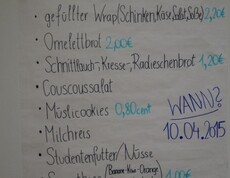 gefüllter Wrap (Schinken, Käse, Salat, Soße) 2,20€
• Omelettbrot 2,00€
• Schnittlauch-, Kresse-, Radieschenbrot 1,20€
• Couscoussalat
• Müslicookies 0,80cent
• Milchreis
• Studentenfutter/Nüsse
(Banane-Kiwi-Orange)
WANN?
10.04.2015